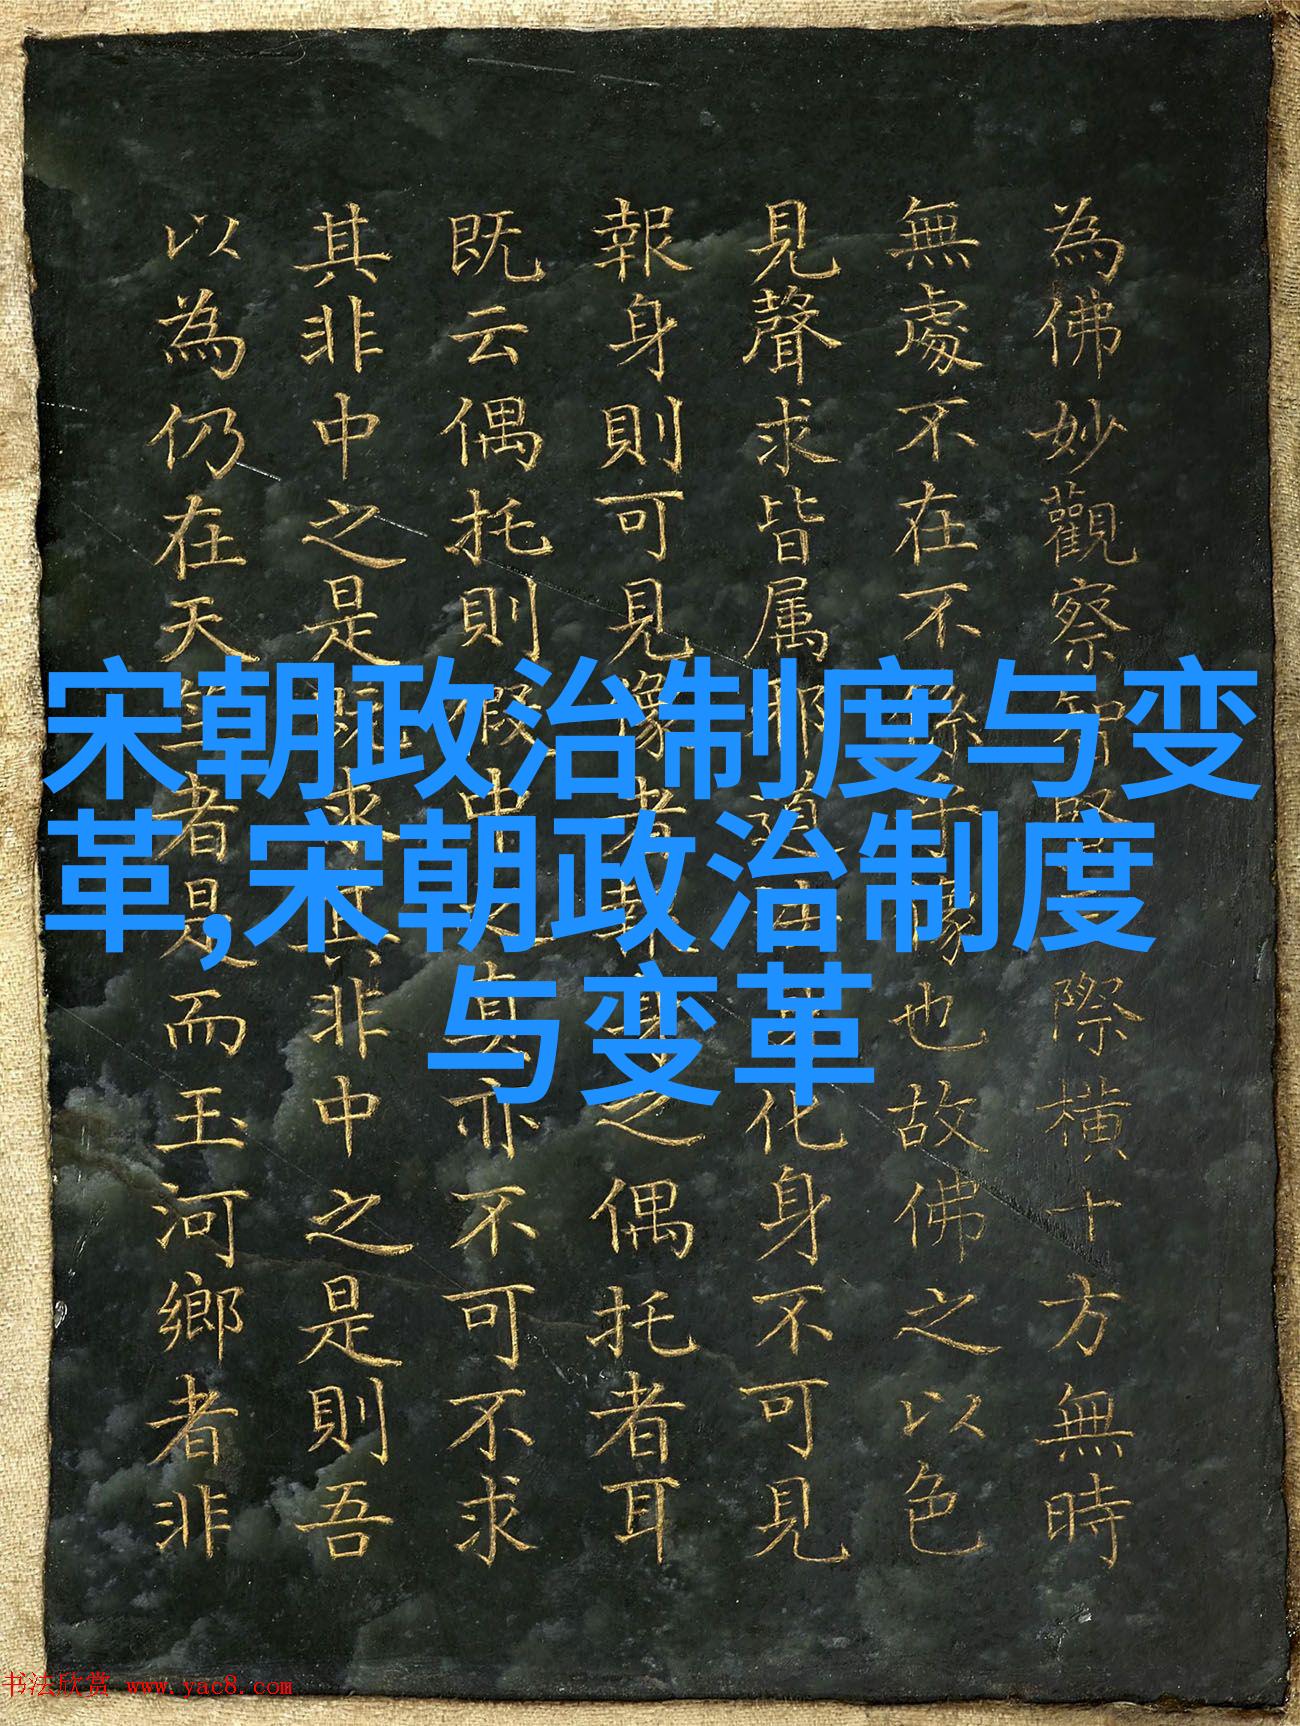 宋朝政治制度与变
革,宋朝政治制度
与变革
為佛妙觀察智際橫十方無時
無處不在不係像也故佛之以色
見聲求皆属邪道化身不可見
報身則可見像者報身之偶托者耳
既云偶托則假中之真亦不可不求
其非中之是既求其非中之是則吾
以為仍在天竺者是而玉河鄉者非
书法欣赏 www.yac8.com